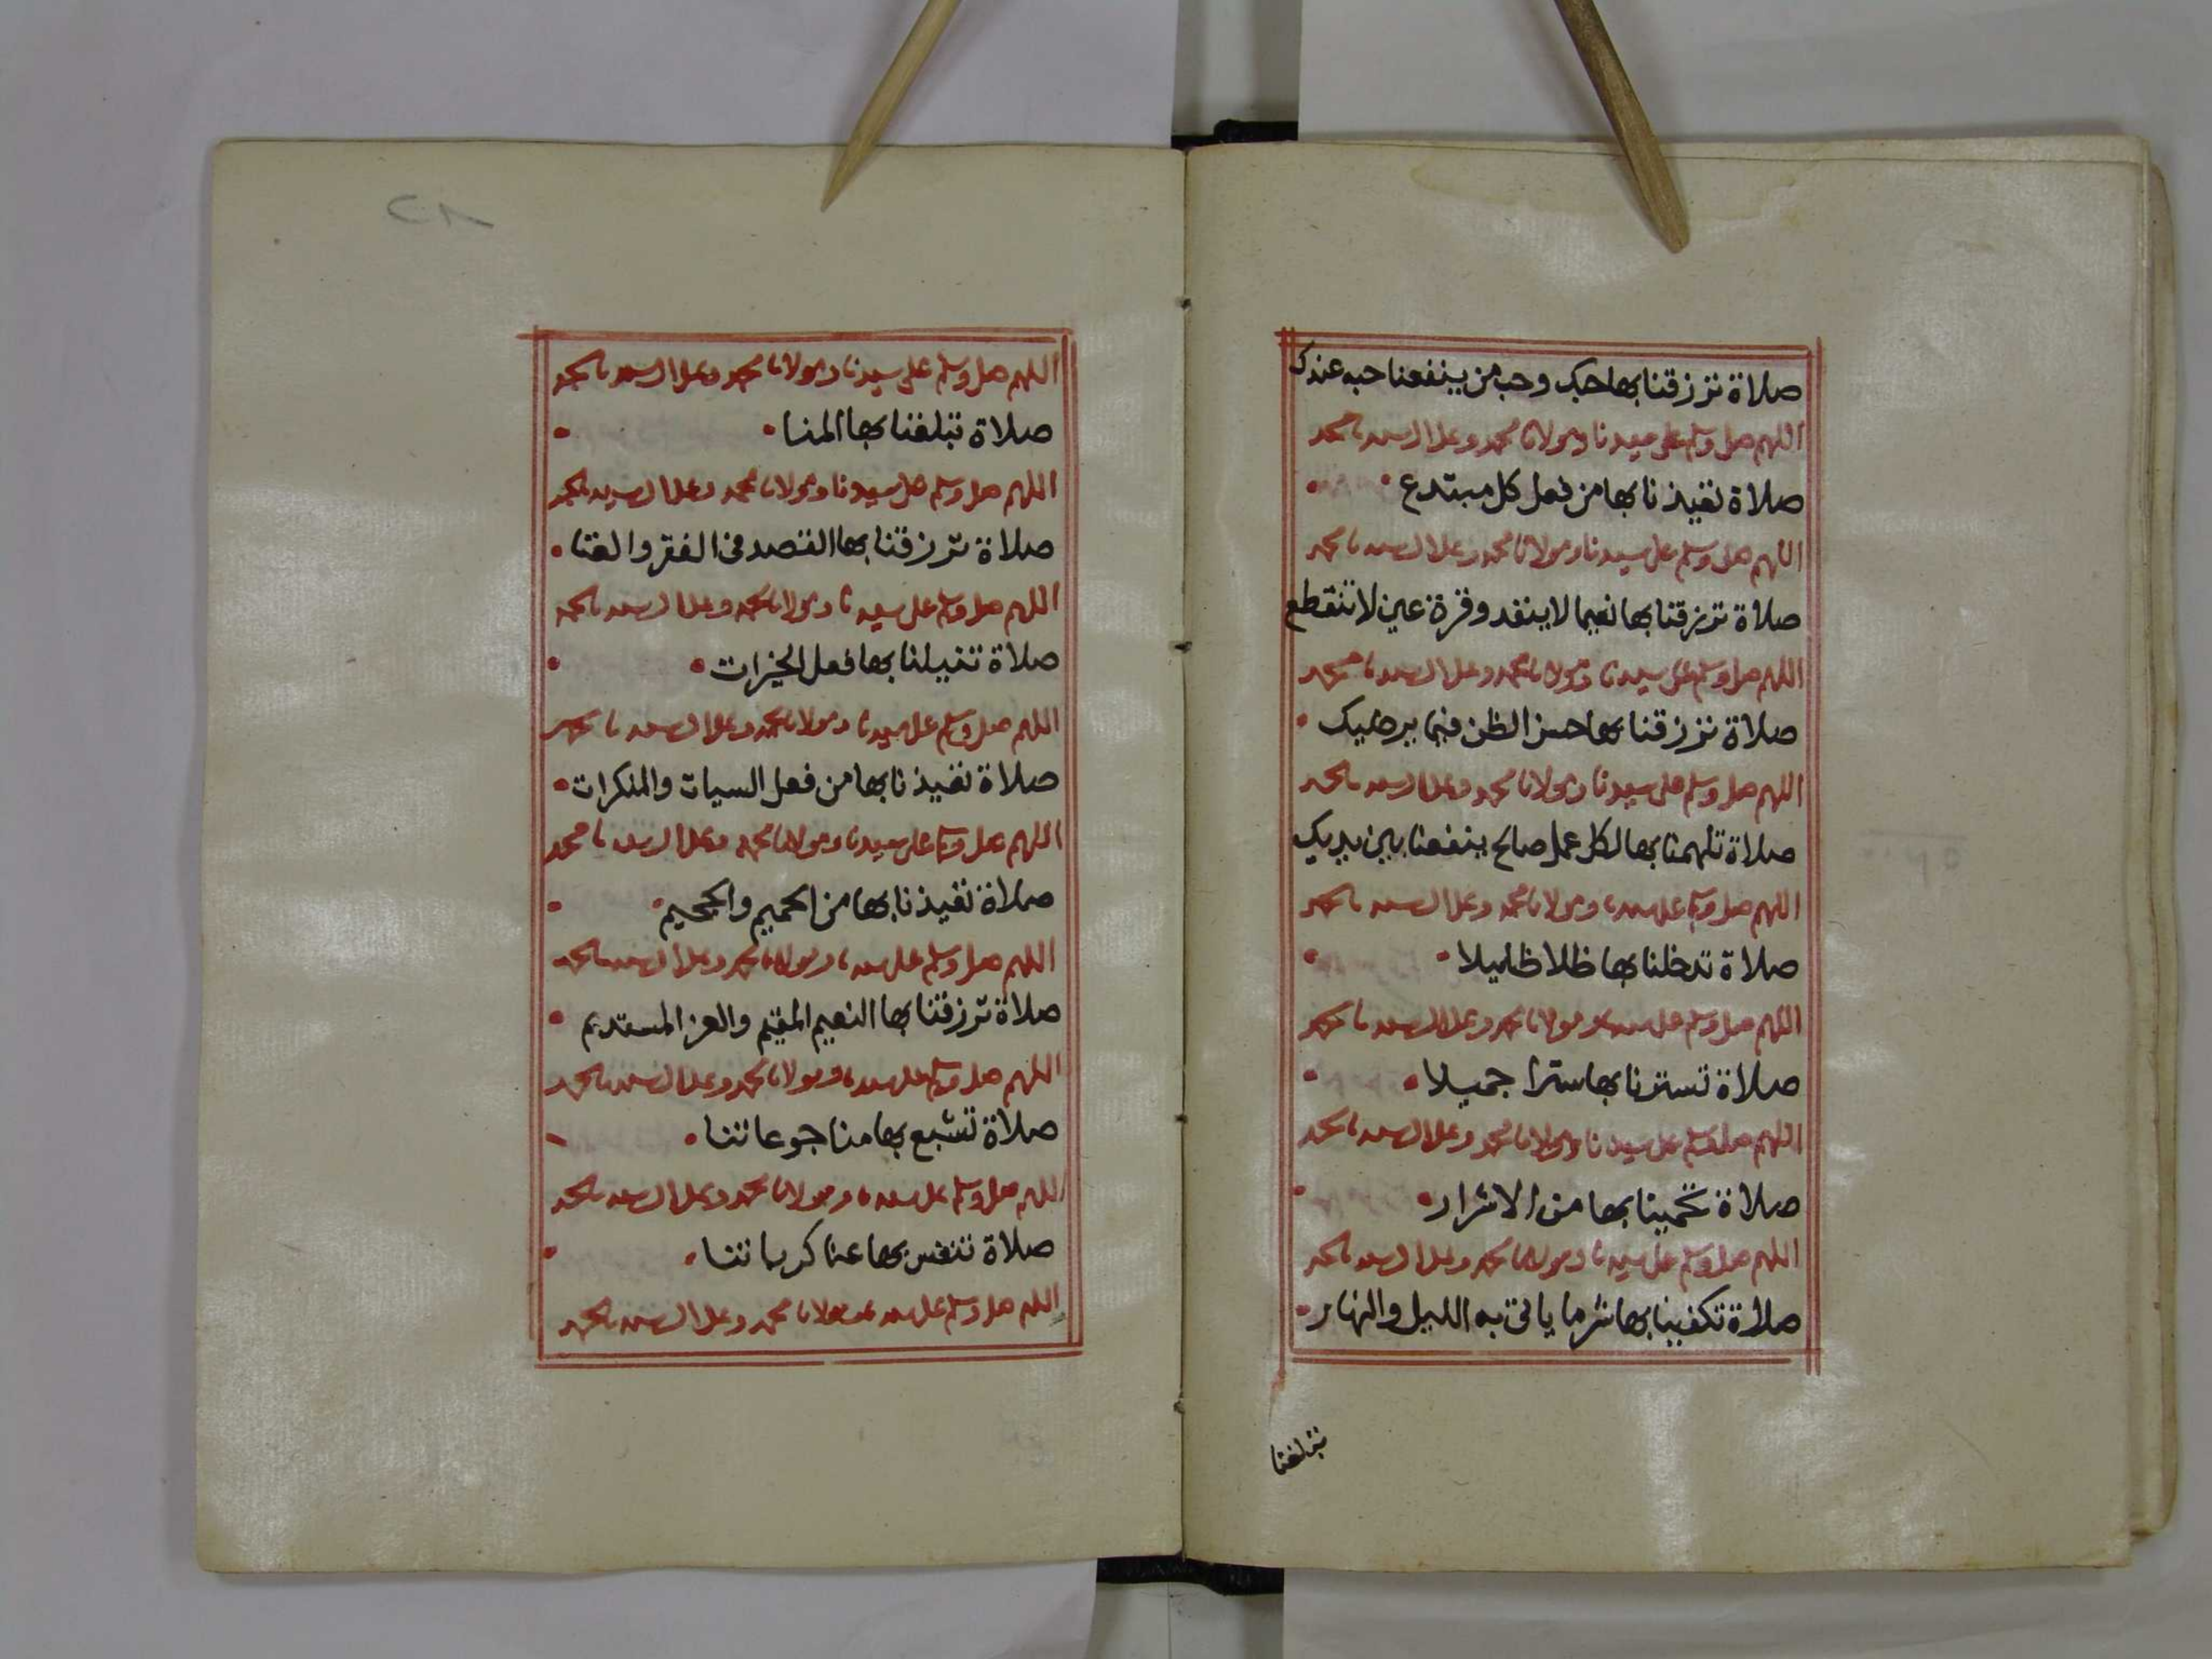 صلاة ترزقنا بها حبك وحب من ينفعنا حبه عندك
اللهم صل وسلم على سيدنا ومولانا محمد وعلى ال سيدنا محمد
صلاة تعيذنا بها من فعل كل مبتدع
اللهم صل وسلم على سيدنا ومولانا محمد وعلى ال سيدنا محمد
صلاة ترزقنا بها نعيما لا ينفد وقرة عين لا تنقطع
اللهم صل وسلم على سيدنا ومولانا محمد وعلى ال سيدنا محمد
صلاة ترزقنا بها حسن الظن فيما يرضيك
اللهم صل وسلم على سيدنا ومولانا محمد وعلى ال سيدنا محمد
صلاة تلهمنا بها لكل عمل صالح ينفعنا بين يديك
اللهم صل وسلم على سيدنا ومولانا محمد وعلى ال سيدنا محمد
صلاة تدخلنا بها ظلا ظليلا
اللهم صل وسلم على سيدنا ومولانا محمد وعلى ال سيدنا محمد
صلاة تسترنا بها سترا جميلا
اللهم صل وسلم على سيدنا ومولانا محمد وعلى ال سيدنا محمد
صلاة تحمينا بها من الاشرار
اللهم صل وسلم على سيدنا ومولانا محمد وعلى ال سيدنا محمد
صلاة تكفينا بها شر ما ياتى به الليل والنهار
تبلغنا
٢٨
اللهم صل وسلم على سيدنا ومولانا محمد وعلى ال سيدنا محمد
صلاة تبلغنا بها المنا
اللهم صل وسلم على سيدنا ومولانا محمد وعلى ال سيدنا محمد
صلاة ترزقنا بها القصد فى الفقر والغنا
اللهم صل وسلم على سيدنا ومولانا محمد وعلى ال سيدنا محمد
صلاة تنيلنا بها فعل الخيرات
اللهم صل وسلم على سيدنا ومولانا محمد وعلى ال سيدنا محمد
صلاة تعيذنا بها من فعل السيات والمنكرات
اللهم صل وسلم على سيدنا ومولانا محمد وعلى ال سيدنا محمد
صلاة تعيذنا بها من الحميم والجحيم
اللهم صل وسلم على سيدنا ومولانا محمد وعلى ال سيدنا محمد
صلاة ترزقنا بها النعيم المقيم والعز المستديم
اللهم صل وسلم على سيدنا ومولانا محمد وعلى ال سيدنا محمد
صلاة تشبع بها منا جوعاتنا
اللهم صل وسلم على سيدنا ومولانا محمد وعلى ال سيدنا محمد
صلاة تنفس بها عنا كرباتنا
اللهم صل وسلم على سيدنا ومولانا محمد وعلى ال سيدنا محمد